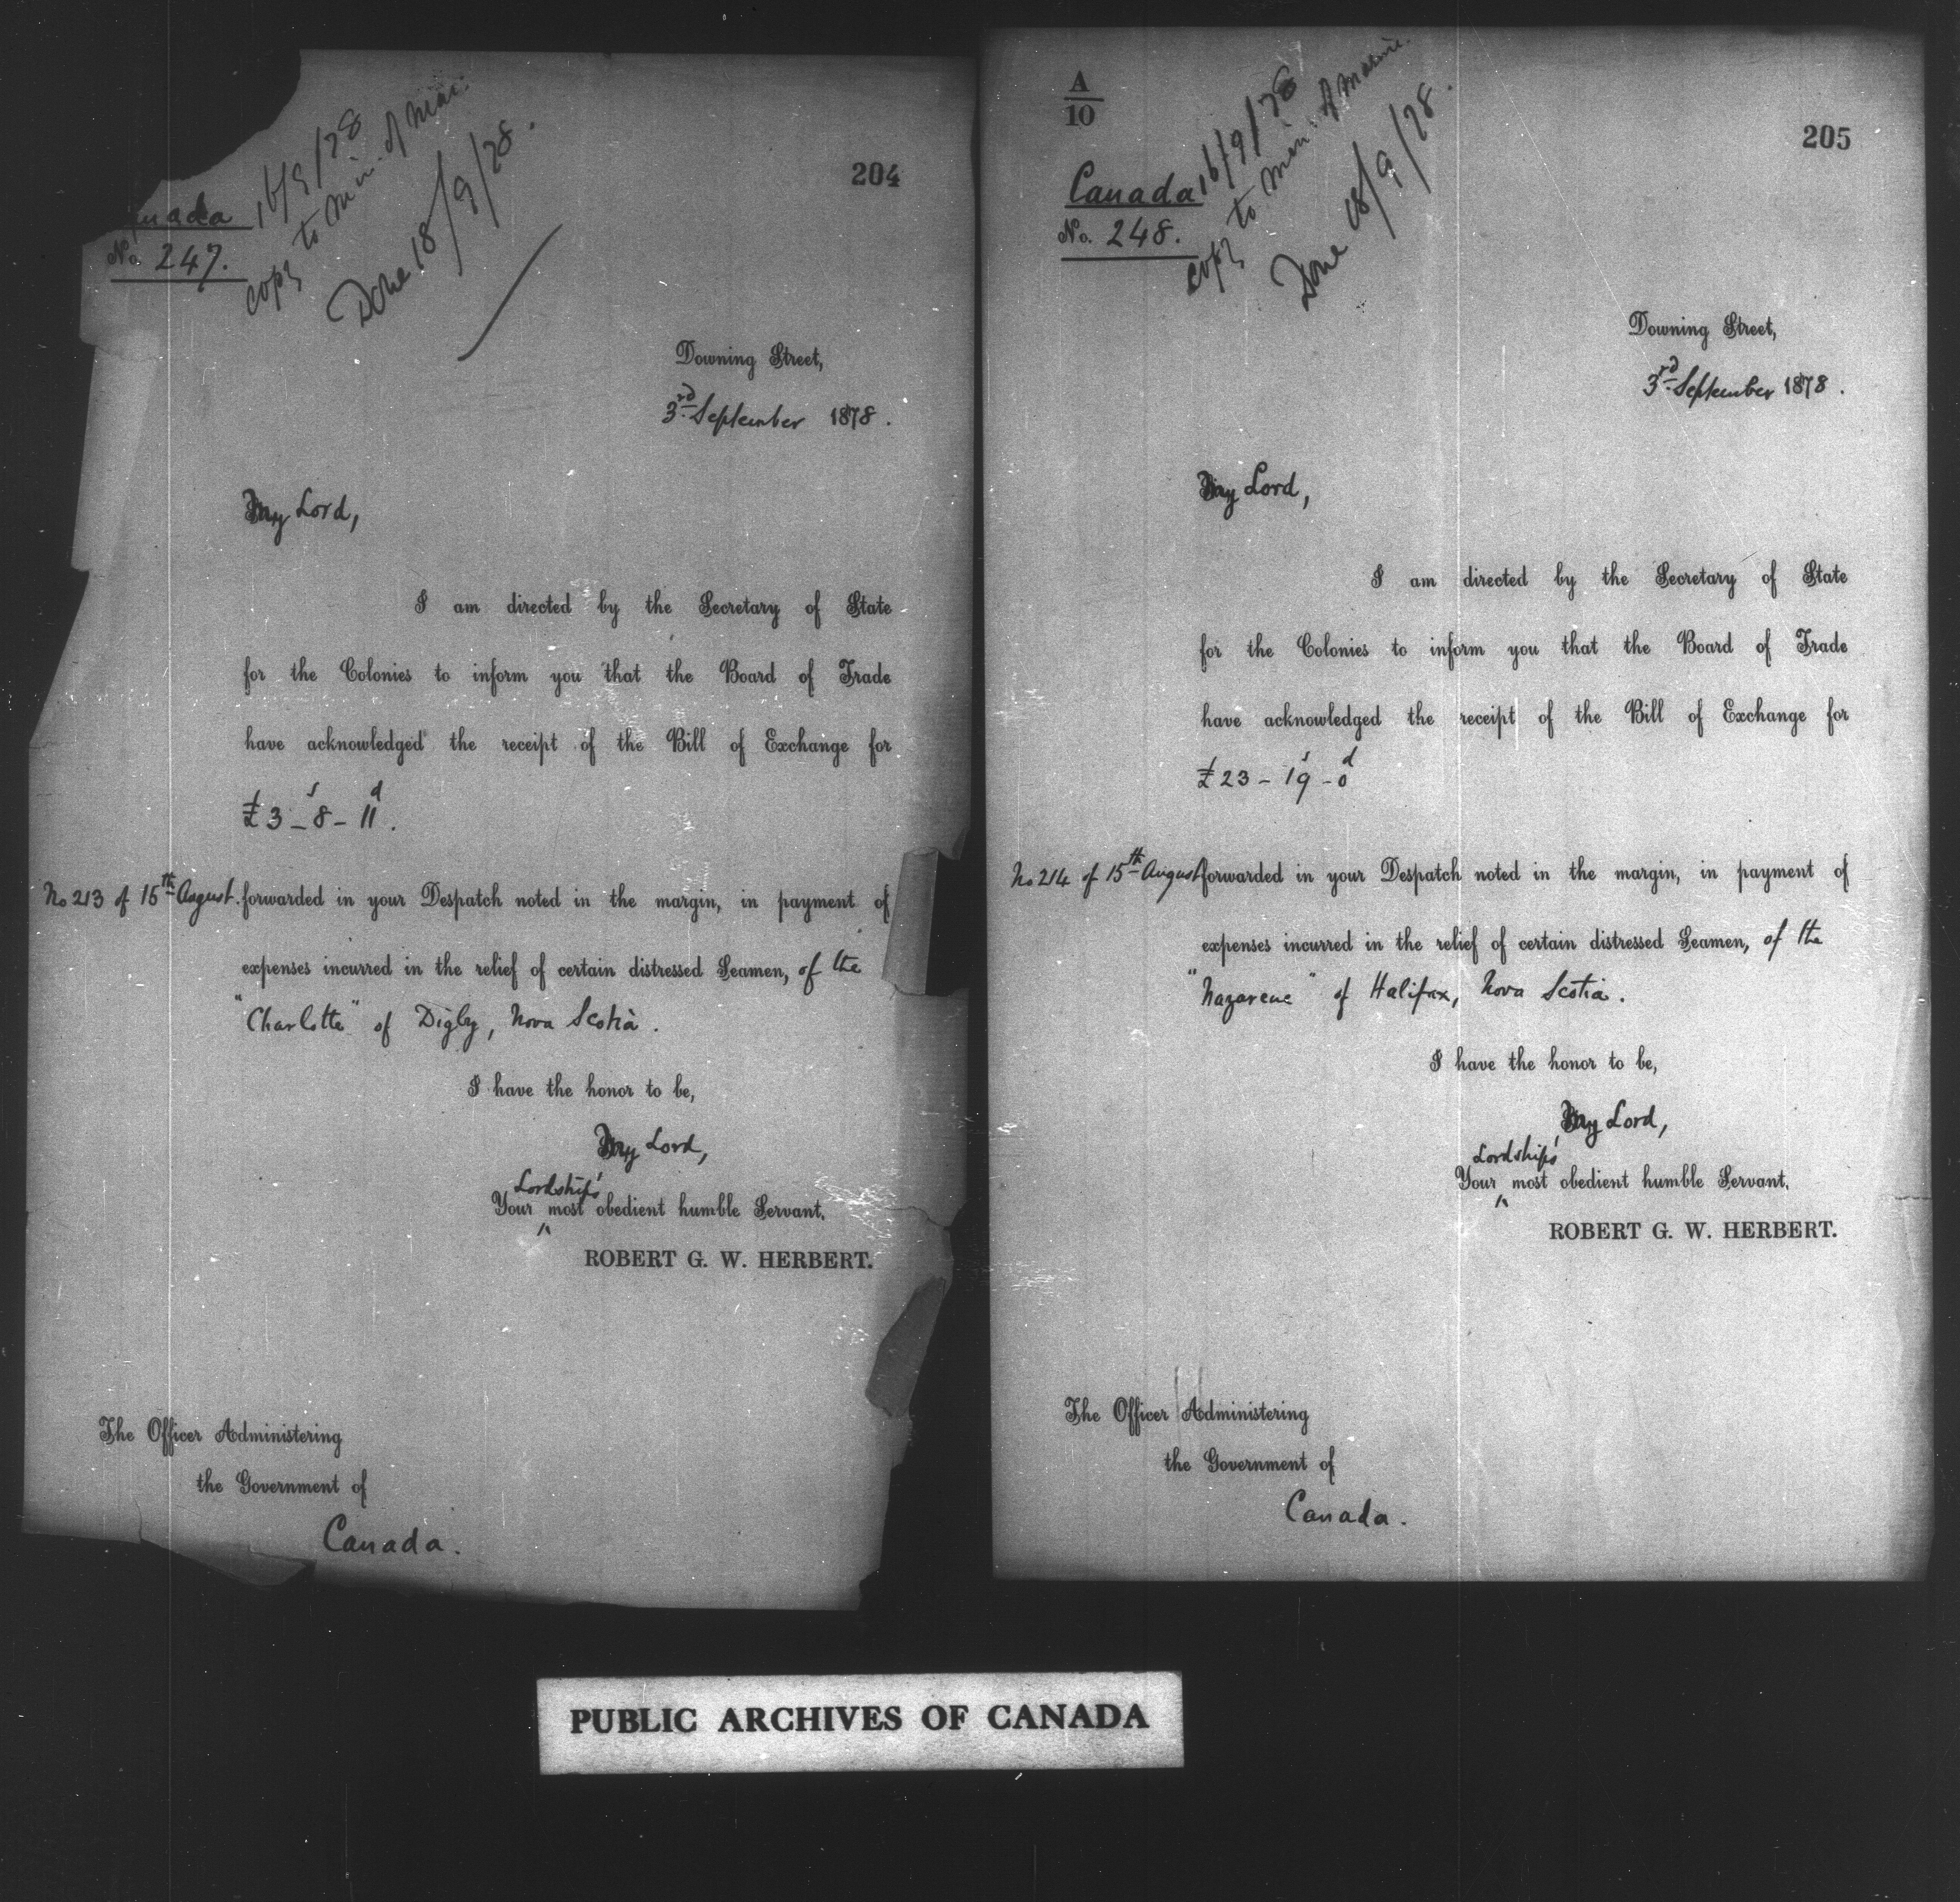 204
Canada
No. 247.
16/9/78
copy to Min. of Mar.
Done 18/9/78.
Downing Street,
3rd September 1878.
My Lord,
I am directed by the Secretary of State
for the Colonies to inform you that the Board of Trade
have acknowledged the receipt of the Bill of Exchange for
£3 - 8s - 11d.
No 213 of 15th August. forwarded in your Despatch noted in the margin, in payment of
expenses incurred in the relief of certain distressed Seamen, of the
"Charlotte" of Digby, Nova Scotia.
I have the honor to be,
My Lord,
Lordship's
Your most obedient humble Servant,
ROBERT G. W. HERBERT.
The Officer Administering
the Government of
Canada.
A/10
205
Canada
No. 248.
16/9/78
copy to Min: of Marine.
Done 18/9/78.
Downing Street,
3rd September 1878.
My Lord,
I am directed by the Secretary of State
for the Colonies to inform you that the Board of Trade
have acknowledged the receipt of the Bill of Exchange for
£23 - 19s - 0d
No 214 of 15th August forwarded in your Despatch noted in the margin, in payment of
expenses incurred in the relief of certain distressed Seamen, of the
"Nazarene" of Halifax, Nova Scotia.
I have the honor to be,
My Lord,
Lordship's
Your most obedient humble Servant,
ROBERT G. W. HERBERT.
The Officer Administering
the Government of
Canada.
PUBLIC ARCHIVES OF CANADA